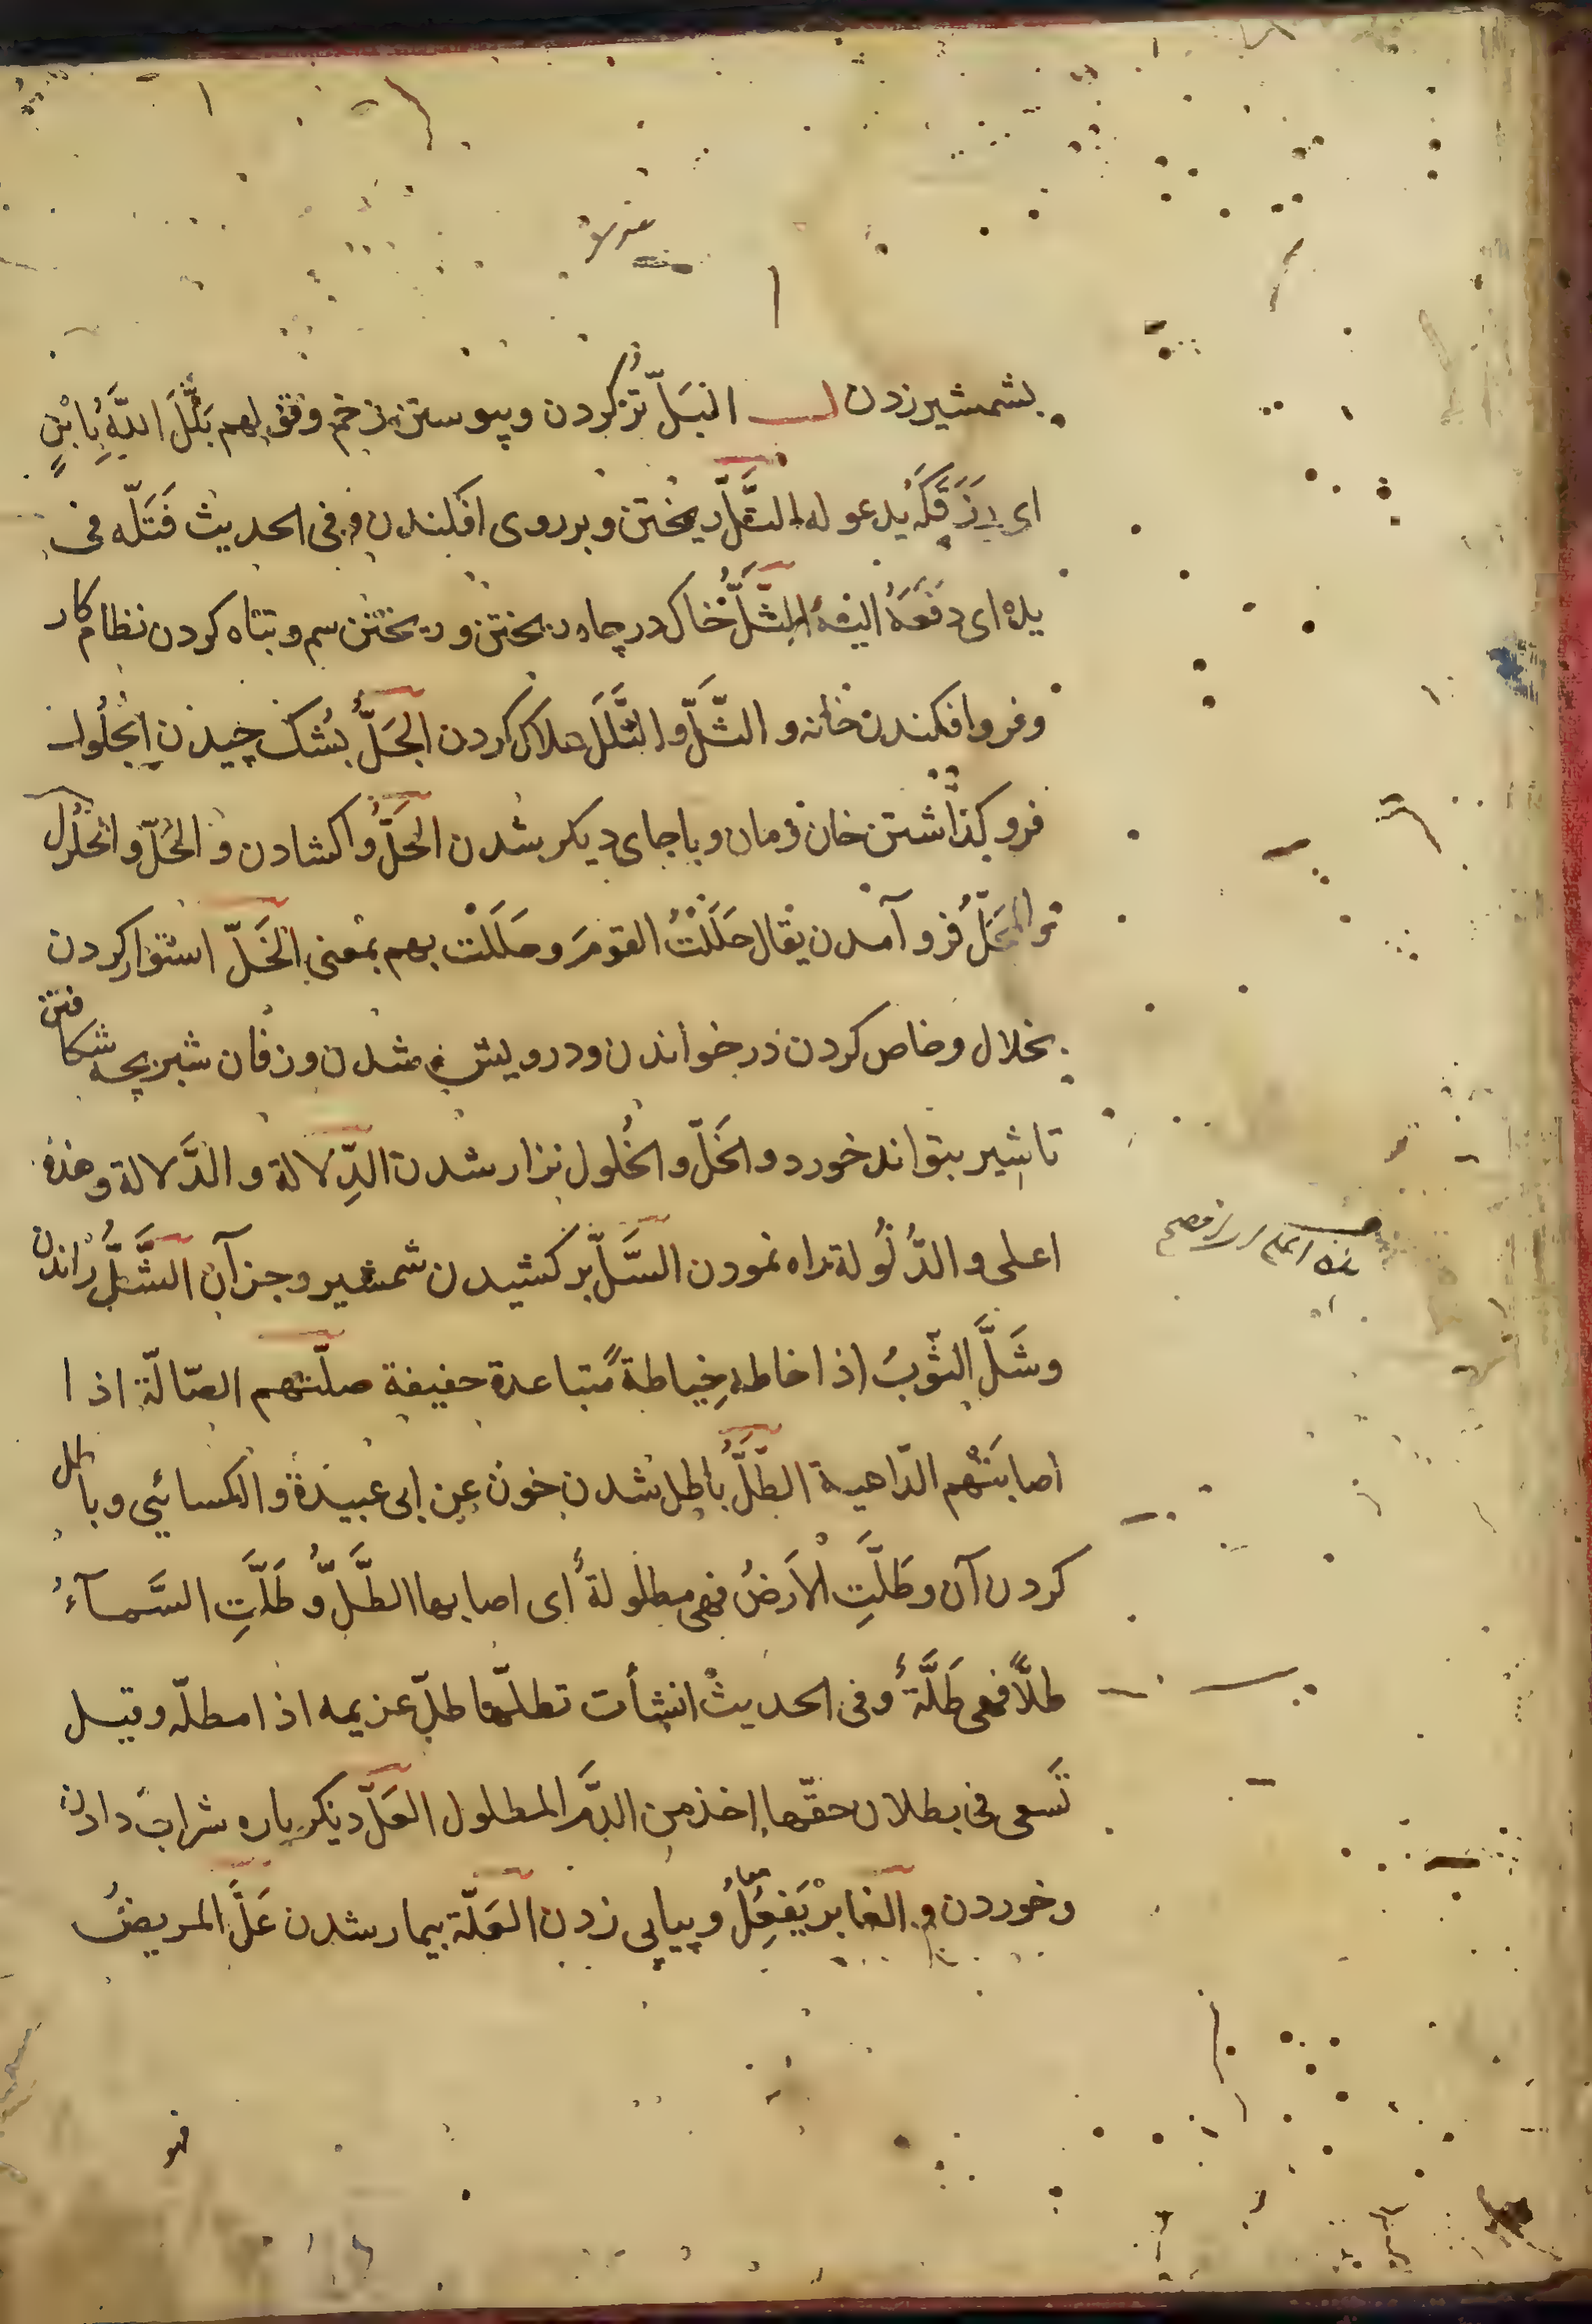 بشمشیر زدن ل البَلّ تر کردن و پیوستن زخم وقولهم بَلَّكَ اللّهُ بِابْنٍ
ای رَزَقَكَهُ یدعو له التَّلّ ریختن و بر روی افکندن و فی الحدیث فَتَلّه فی
یده ای دَفَعَهُ الیه الثَّلُّ خاک در چاه ریختن و ریختن سم و تباه کردن نظام کار
و فرو افکندن خانه و الثَّلّ و الثَّلَل هلاک کردن الجَلُّ بشک چیدن الجُلُول از
فرو گذاشتن خان و مان و با جای دیگر شدن الحَلُّ وا کشادن و الحُلّ و الحُلُول
و المَحَلُّ فرو آمدن یقال حَلَلْتُ القومَ و حَلَلْت بهم بمعنی الخَلّ استوار کردن
بخلال و خاص کردن در خواندن و درویش شدن و زفان شیر بچه شکافتن
تا شیر بتواند خورد و الخَلّ و الخُلول نزار شدن الدِّلالة و الدَّلالة و هذه
اعلی و الدُّلُولة راه نمودن السَّلّ بر کشیدن شمشیر و جز آن الشَّلُّ راندن
و شَلَّ الثوبَ اذا خاطه خِیاطةً متباعدة خفیفة صلّتهم الصّالّة اذا
اصابَتْهم الدّاهیة الطَّلُّ باطل شدن خون عن ابی عبیدة و الکسائی و باطل
کردن آن و طَلَّتِ الْاَرضُ فهی مطلولة ای اصابها الطَّلُّ و طَلَّتِ السَّمآءُ
طلًّا فهی طَلَّةٌ و فی الحدیث انشأت تطلّها طلّ غریمه اذا مطله و قیل
تَسعی فی بطلان حقّها اخذ من الدَّم المطلول العَلّ دیگر باره شراب دادن
و خوردن و الغابرْ یَفعِلُ معا و پیاپی زدن العَلّة بیمار شدن عَلَّ المریضُ
فهو